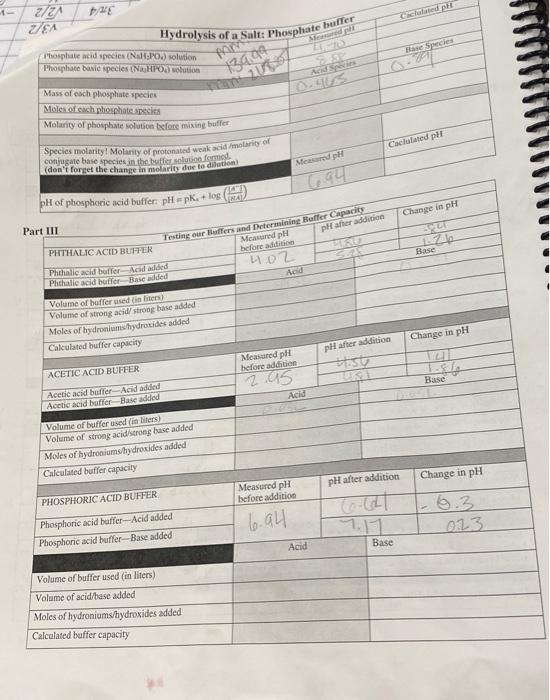 Hydrolysis of a Salt: Phosphate buffer
Measured pH
Caclulated pH
Phosphate acid species (NaH₂PO₄) solution
4.70
Phosphate basic species (Na₂HPO₄) solution
8.58
Acid Species
Base Species
Mass of each phosphate species
0.463
Moles of each phosphate species
Molarity of phosphate solution before mixing buffer
Species molarity! Molarity of protonated weak acid /molarity of
conjugate base species in the buffer solution formed.
(don't forget the change in molarity due to dilution)
Measured pH
Caclulated pH
pH of phosphoric acid buffer: pH = pKₐ + log ([A⁻]/[HA])
6.94
Part III
Testing our Buffers and Determining Buffer Capacity
PHTHALIC ACID BUFFER
Measured pH before addition
pH after addition
Change in pH
Phthalic acid buffer—Acid added
4.02
Phthalic acid buffer—Base added
1.26
Acid
Base
Volume of buffer used (in liters)
Volume of strong acid/ strong base added
Moles of hydroniums/hydroxides added
Calculated buffer capacity
ACETIC ACID BUFFER
Measured pH before addition
pH after addition
Change in pH
Acetic acid buffer—Acid added
2.95
Acetic acid buffer—Base added
1.86
Acid
Base
Volume of buffer used (in liters)
Volume of strong acid/strong base added
Moles of hydroniums/hydroxides added
Calculated buffer capacity
PHOSPHORIC ACID BUFFER
Measured pH before addition
pH after addition
Change in pH
Phosphoric acid buffer—Acid added
6.94
Phosphoric acid buffer—Base added
7.17
0.23
Acid
Base
Volume of buffer used (in liters)
Volume of acid/base added
Moles of hydroniums/hydroxides added
Calculated buffer capacity